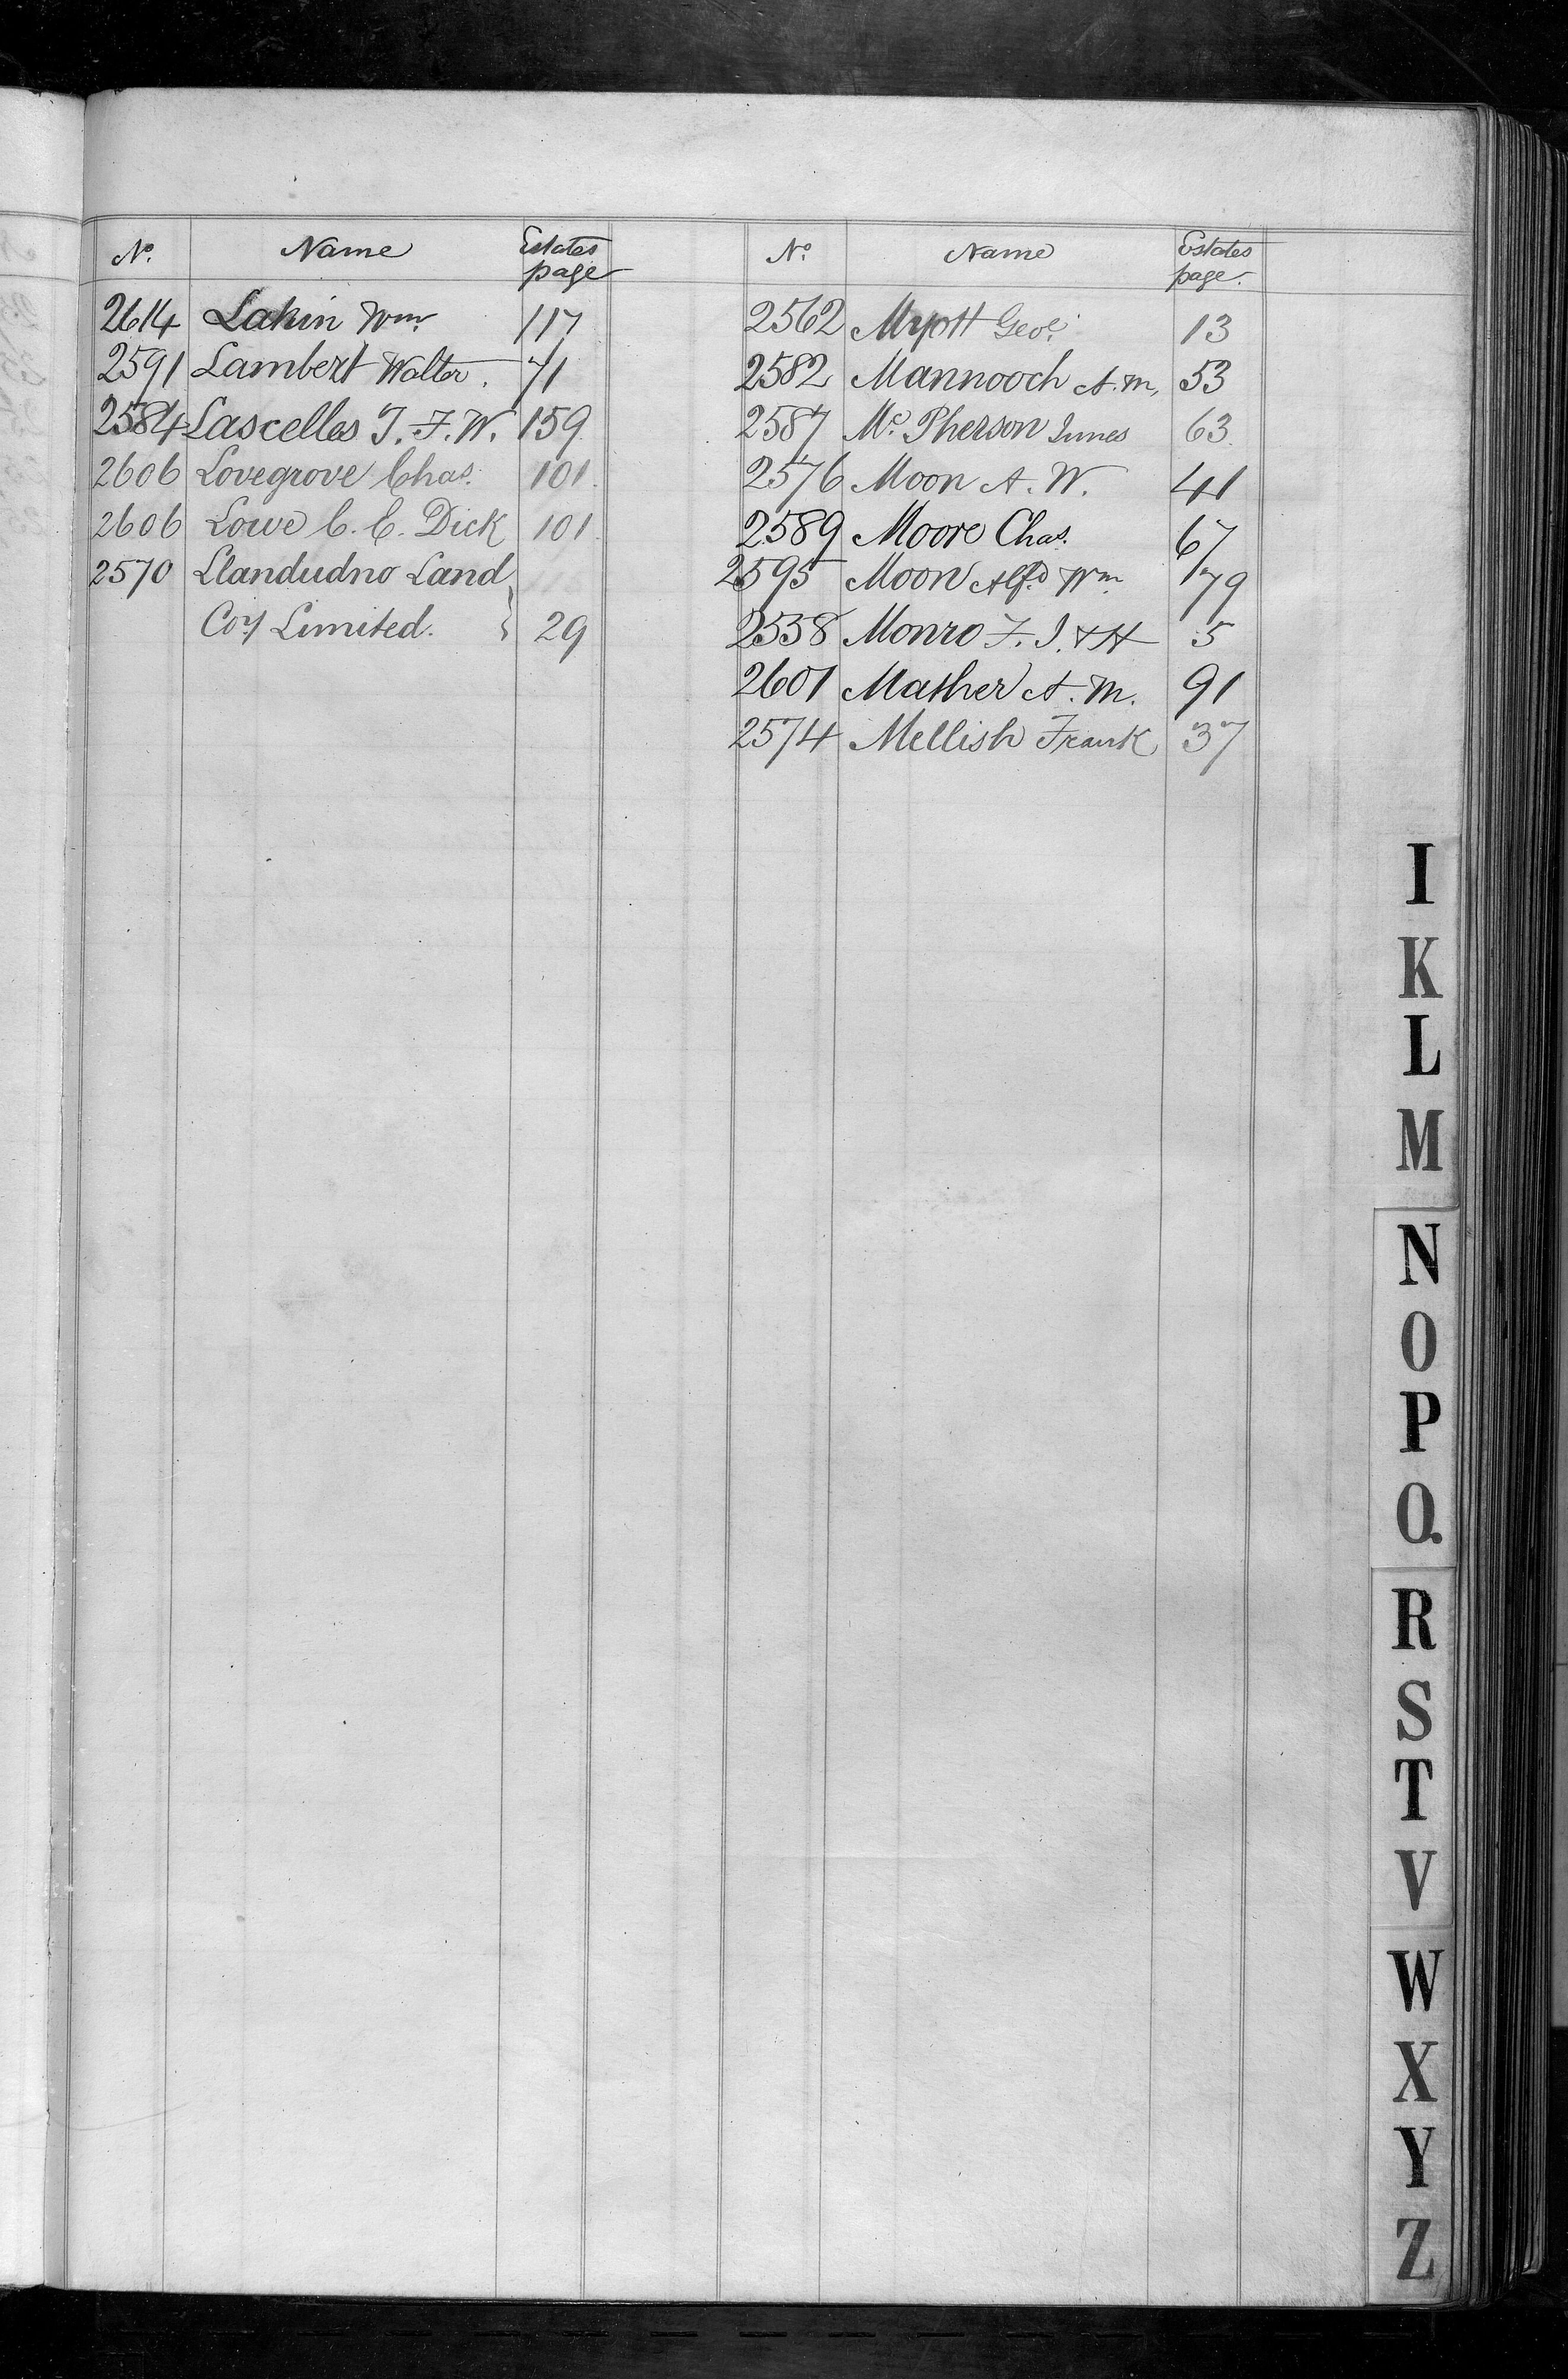 No. Name Estates page
2614 Lakin Wm. 117
2591 Lambert Walter. 71
2584 Lascelles T. F. W. 159
2606 Lovegrove Chas. 101.
2606 Lowe C. E. Dick 101
2570 Llandudno Land
Coy Limited. } 29
No. Name Estates page.
2562 Myott Geo. 13
2582 Mannooch A. M. 53
2587 Mc. Pherson Innes 63
2576 Moon A. W. 41
2589 Moore Chas. 67
2595 Moon Alfd. Wm. 79
2558 Monro F. J. & H 5
2601 Mather A. M. 91
2574 Mellish Frank 37
I
K
L
M
N
O
P
Q.
R
S
T
V
W
X
Y
Z